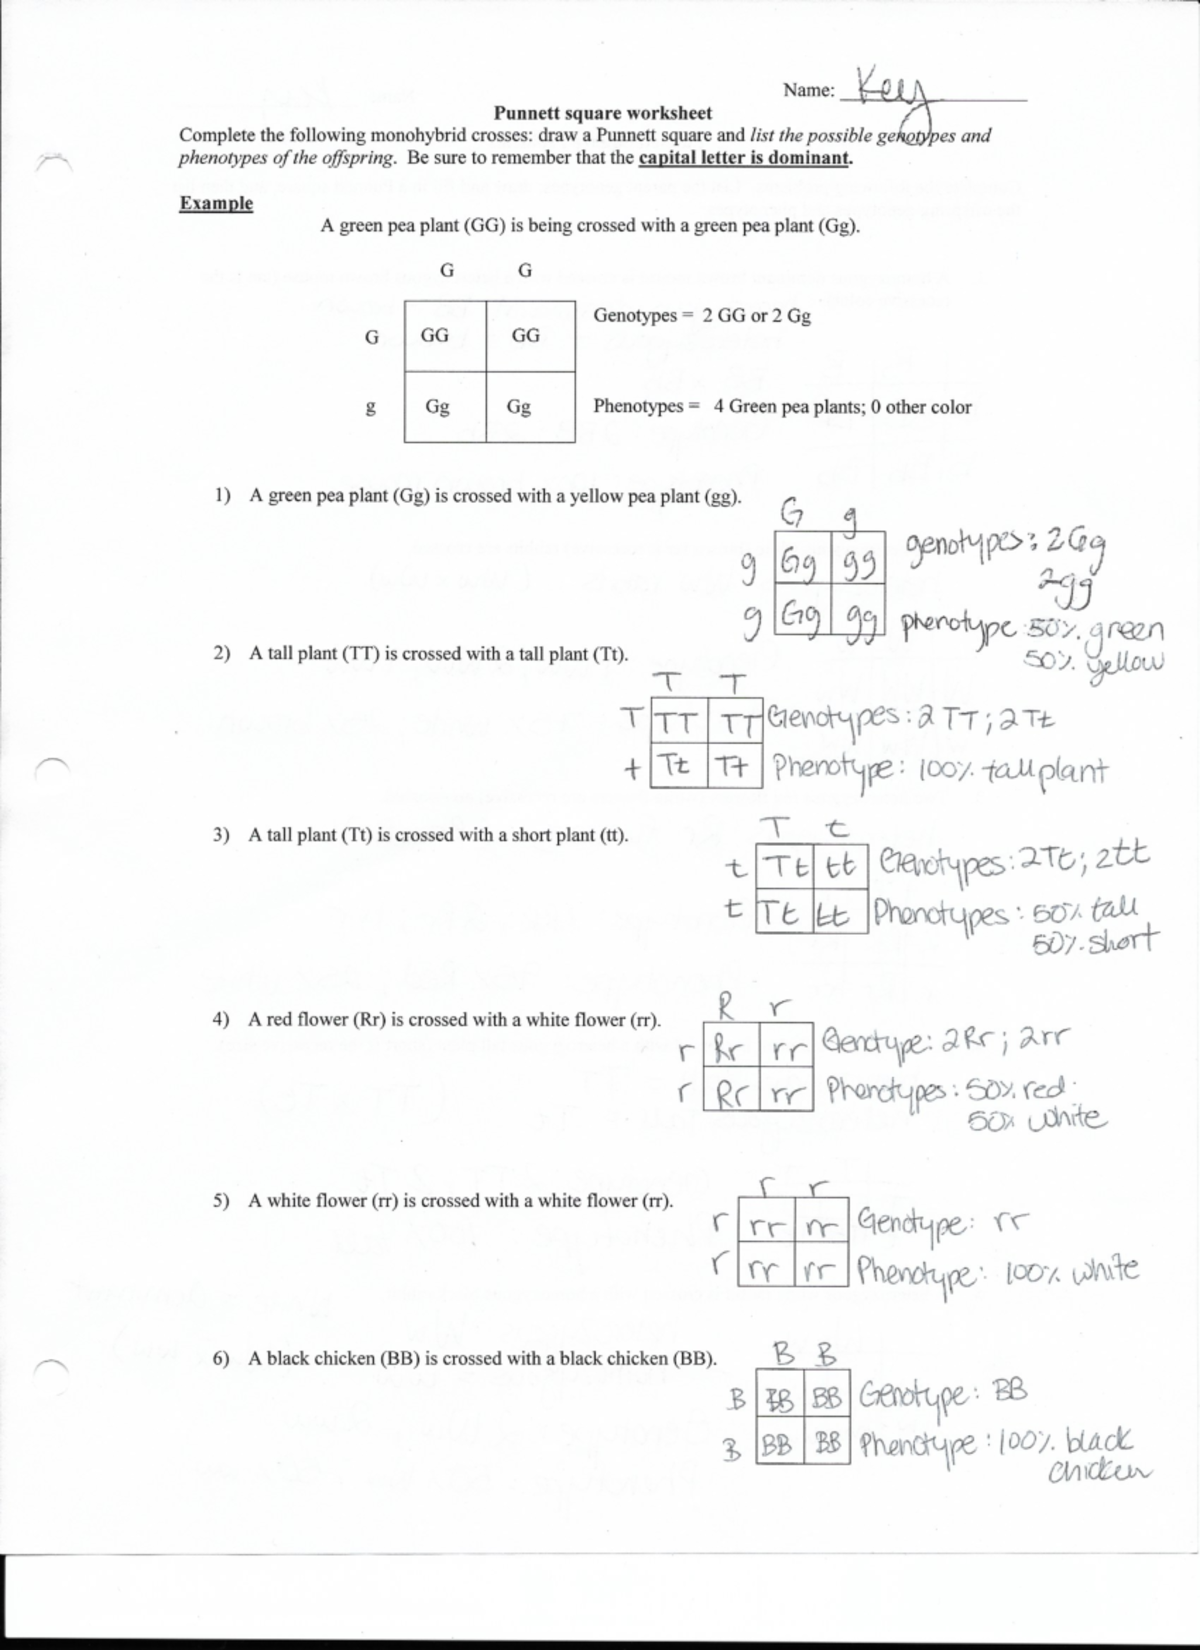 Name: Key
Punnett square worksheet
Complete the following monohybrid crosses: draw a Punnett square and list the possible genotypes and
phenotypes of the offspring. Be sure to remember that the capital letter is dominant.
Example
A green pea plant (GG) is being crossed with a green pea plant (Gg).
G G
Genotypes = 2 GG or 2 Gg
G GG GG
g Gg Gg Phenotypes = 4 Green pea plants; 0 other color
1) A green pea plant (Gg) is crossed with a yellow pea plant (gg).
G g
g Gg gg genotypes: 2Gg
2gg
g Gg gg phenotype: 50% green
50% yellow
2) A tall plant (TT) is crossed with a tall plant (Tt).
T T
T TT TT Genotypes: 2TT; 2Tt
t Tt Tt Phenotype: 100% tall plant
3) A tall plant (Tt) is crossed with a short plant (tt).
T t
t Tt tt Genotypes: 2Tt; 2tt
t Tt tt Phenotypes: 50% tall
50% short
4) A red flower (Rr) is crossed with a white flower (rr).
R r
r Rr rr Genotype: 2Rr; 2rr
r Rr rr Phenotypes: 50% red
50% white
5) A white flower (rr) is crossed with a white flower (rr).
r r
r rr rr Genotype: rr
r rr rr Phenotype: 100% white
6) A black chicken (BB) is crossed with a black chicken (BB).
B B
B BB BB Genotype: BB
B BB BB Phenotype: 100% black
chicken